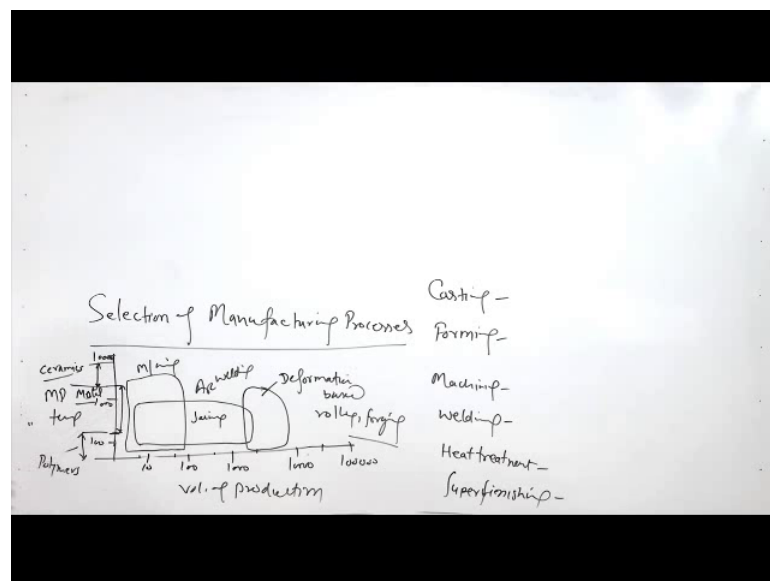 Selection of Manufacturing Processes
ceramics
MP Metal
temp
Polymers
1000
100
M/cing
Arc welding
Joining
Deformation
based
rolling, forging
10 100 1000 1000 100000
vol. of production
Casting -
Forming -
Machining -
Welding -
Heat treatment -
Superfinishing -